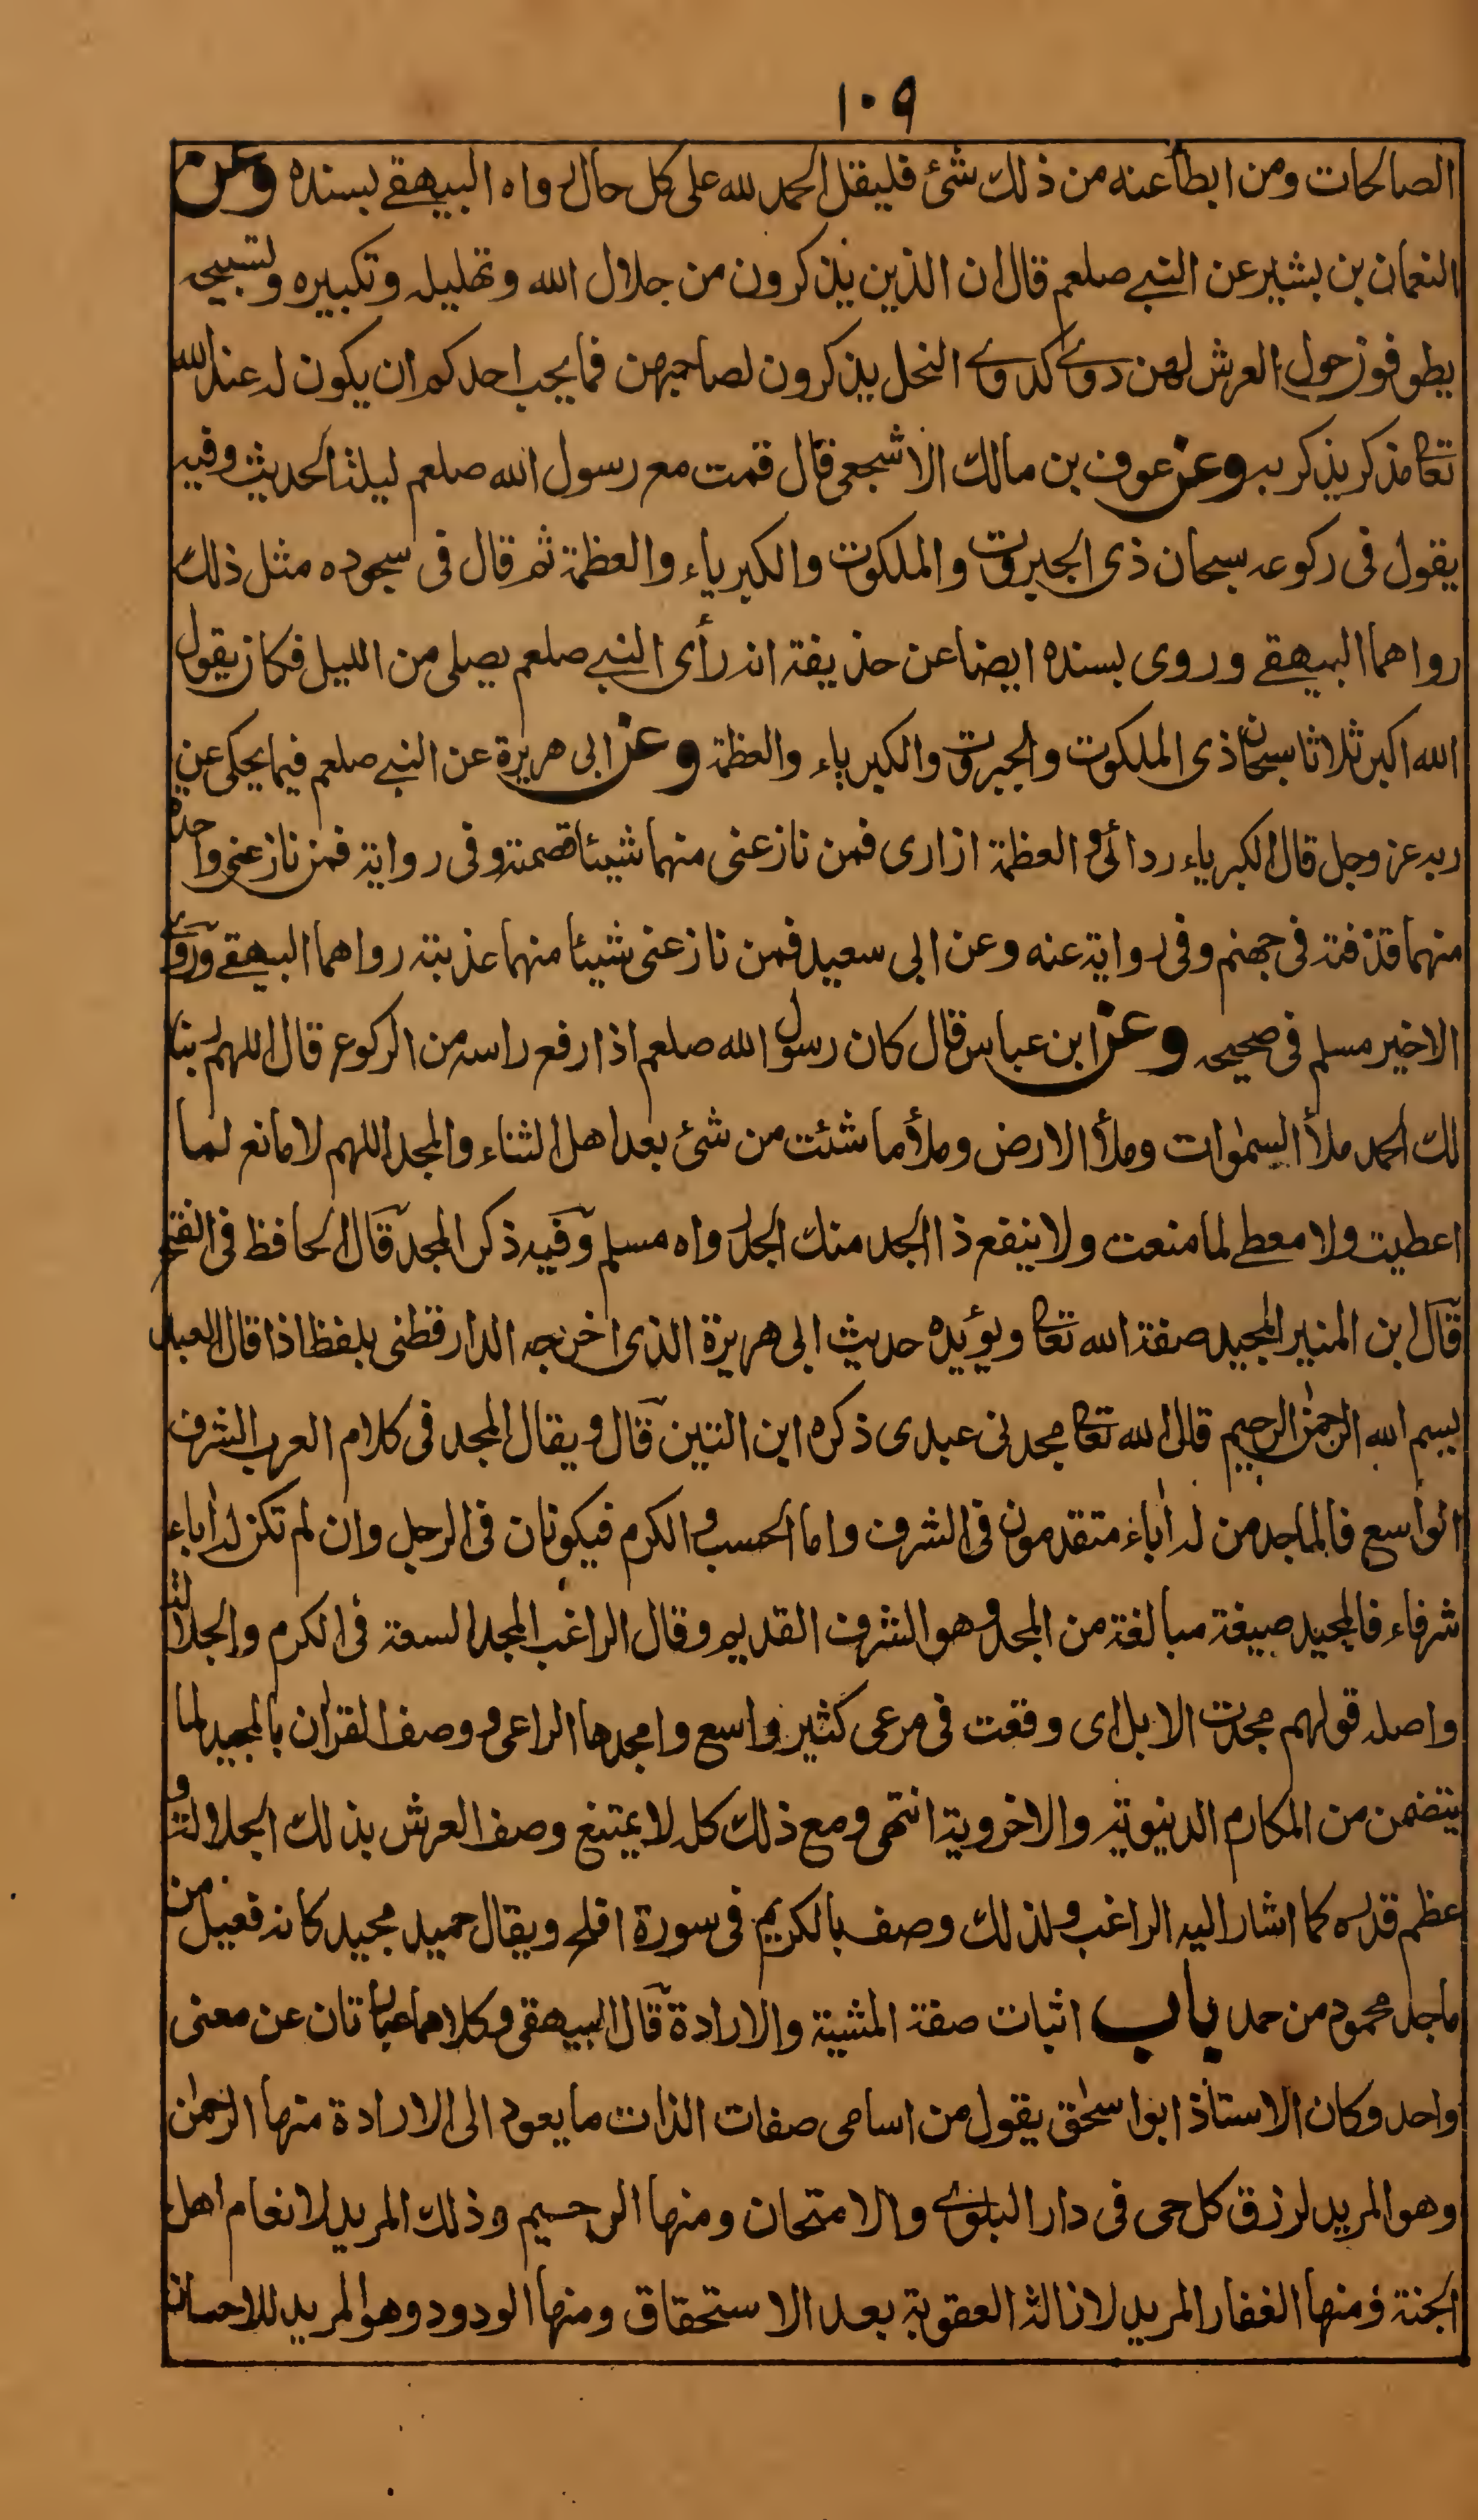 ١٠٩
الصالحات ومن ابطأ عنه من ذلك شئ فليقل الحمد لله على كل حال رواه البيهقے بسنده وعن
النعمان بن بشير عن النبے صلعم قال ان الذين يذكرون من جلال الله وتهليله وتكبيره وتسبيحه
يطوفون حول العرش لهن دوے كدوے النحل يذكرون لصاحبهن فما يحب احدكم ان يكون له عند الله
تعا مذكر يذكر به وعن عوف بن مالك الاشجعى قال قمت مع رسول الله صلعم ليلة الحديث وفيه
يقول فى ركوعه سبحان ذى الجبروت والملكوت والكبرياء والعظمة ثم قال فى سجوده مثل ذلك
رواهما البيهقے وروى بسنده ايضا عن حذيفة انه رأى النبے صلعم يصلى من الليل فكان يقول
الله اكبر ثلاثا سبحان ذى الملكوت والجبروت والكبرياء والعظمة وعن ابى هريرة عن النبے صلعم فيما يحكى عن
ربه عز وجل قال الكبرياء ردائى والعظمة ازارى فمن نازعنى منهما شيئا قصمته وفى رواية فمن نازعنى واحدة
منهما قذفته فى جهنم وفى رواية عنه وعن ابى سعيد فمن نازعنى شيئا منهما عذبته رواهما البيهقے وروے
الاخير مسلم فى صحيحه وعن ابن عباس قال كان رسول الله صلعم اذا رفع راسه من الركوع قال اللهم ربنا
لك الحمد ملأ السمٰوات وملأ الارض وملأ ما شئت من شئ بعد اهل الثناء والمجد اللهم لا مانع لما
اعطيت ولا معطے لما منعت ولا ينفع ذا الجد منك الجد رواه مسلم وفيه ذكر المجد قال الحافظ فى الفتح
قال ابن المنير المجيد صفة الله تعا ويؤيده حديث ابى هريرة الذى اخرجه الدارقطنى بلفظ اذا قال العبد
بسم الله الرحمٰن الرحيم قال الله تعا مجدنى عبدى ذكره ابن التين قال ويقال المجد فى كلام العرب الشرف
الواسع فالماجد من له اٰباء متقدمون فى الشرف واما الحسب والكرم فيكونان فى الرجل وان لم تكن له اٰباء
شرفاء فالمجيد صيغة مبالغة من المجد وهو الشرف القديم وقال الراغب المجد السعة فى الكرم والجلالة
واصله قولهم مجدت الابل اى وقعت فى مرعى كثير واسع وامجدها الراعى ووصف القراٰن بالمجيد لما
يتضمن من المكارم الدنيوية والاخروية انتهى ومع ذلك كله لا يمتنع وصف العرش بذلك الجلالة و
عظم قدره كما اشار اليه الراغب ولذلك وصف بالكريم فى سورة افلح ويقال حميد مجيد كانه فعيل من
ماجد محمود من حمد باب اثبات صفة المشية والارادة قال البيهقى وكلاهما عبارتان عن معنى
واحد وكان الاستاذ ابو اسحٰق يقول من اسامى صفات الذات ما يعود الى الارادة منها الرحمٰن
وهو المريد لرزق كل حى فى دار البلوے والامتحان ومنها الرحيم وذلك المريد لانعام اهل
الجنة ومنها الغفار المريد لازالة العقوبة بعد الاستحقاق ومنها الودود وهو المريد للاحسان